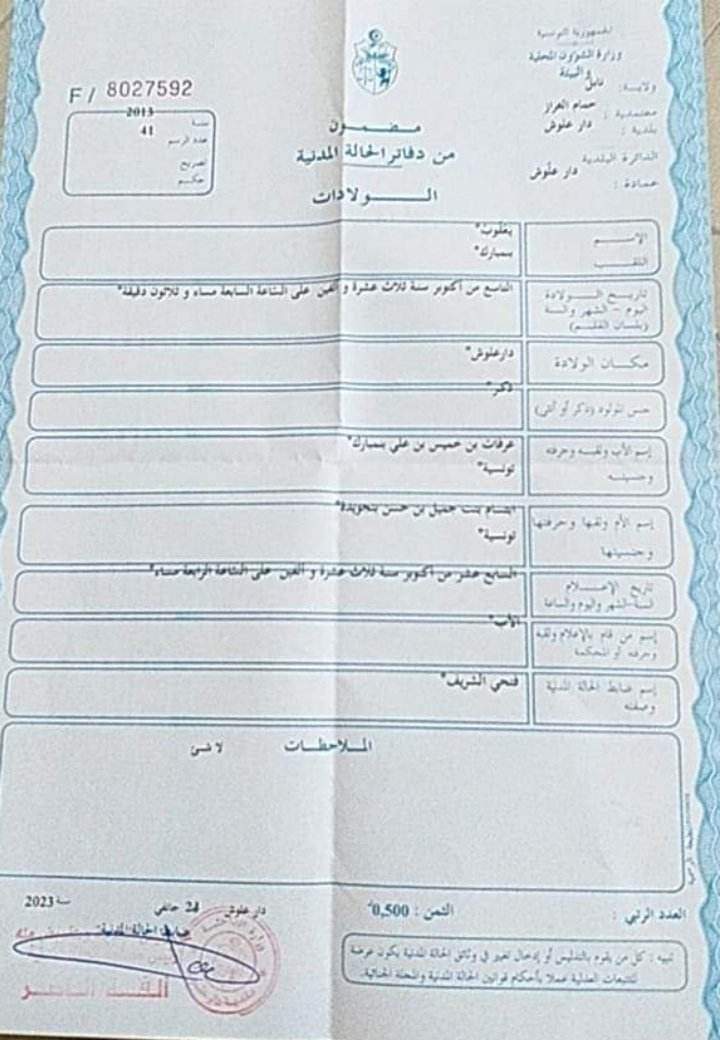 الجمهورية التونسية
وزارة الشؤون المحلية
و البيئة
ولاية: نابل
معتمدية : حمام الغزاز
بلدية : دار علوش
الدائرة البلدية
دار علوش
عمادة :
F / 8027592
سنة 2013
عدد الرسم 41
تصريح
حكم
مضمون
من دفاتر الحالة المدنية
الولادات
الاسم يعقوب*
اللقب بنمبارك*
تاريخ الولادة
اليوم - الشهر والسنة
(بلسان القلم)
التاسع من أكتوبر سنة ثلاث عشرة و ألفين على الساعة السابعة مساء و ثلاثون دقيقة*
مكان الولادة دارعلوش*
جنس المولود (ذكر أو أنثى) ذكر*
إسم الأب ولقبه وحرفته
وجنسيته
عرفات بن خميس بن علي بنمبارك*
تونسية*
إسم الأم ولقبها وحرفتها
وجنسيتها
ابتسام بنت جميل بن حسن
تونسية*
تاريخ الإعلام
السنة-الشهر واليوم والساعة
السابع عشر من أكتوبر سنة ثلاث عشرة و ألفين على الساعة الرابعة مساء*
إسم من قام بالإعلام ولقبه
وحرفته أو المحكمة
الأب*
إسم ضابط الحالة المدنية
وصفته
فتحي الشريف*
الملاحظات لا شئ
العدد الرتبي : الثمن : 0,500د
دار علوش 24 جانفي سنة 2023
ضابط الحالة المدنية
تنبيه : كل من يقوم بالتدليس أو إدخال تغيير في وثائق الحالة المدنية يكون عرضة
للتتبعات العدلية عملا بأحكام قوانين الحالة المدنية والمجلة الجنائية.